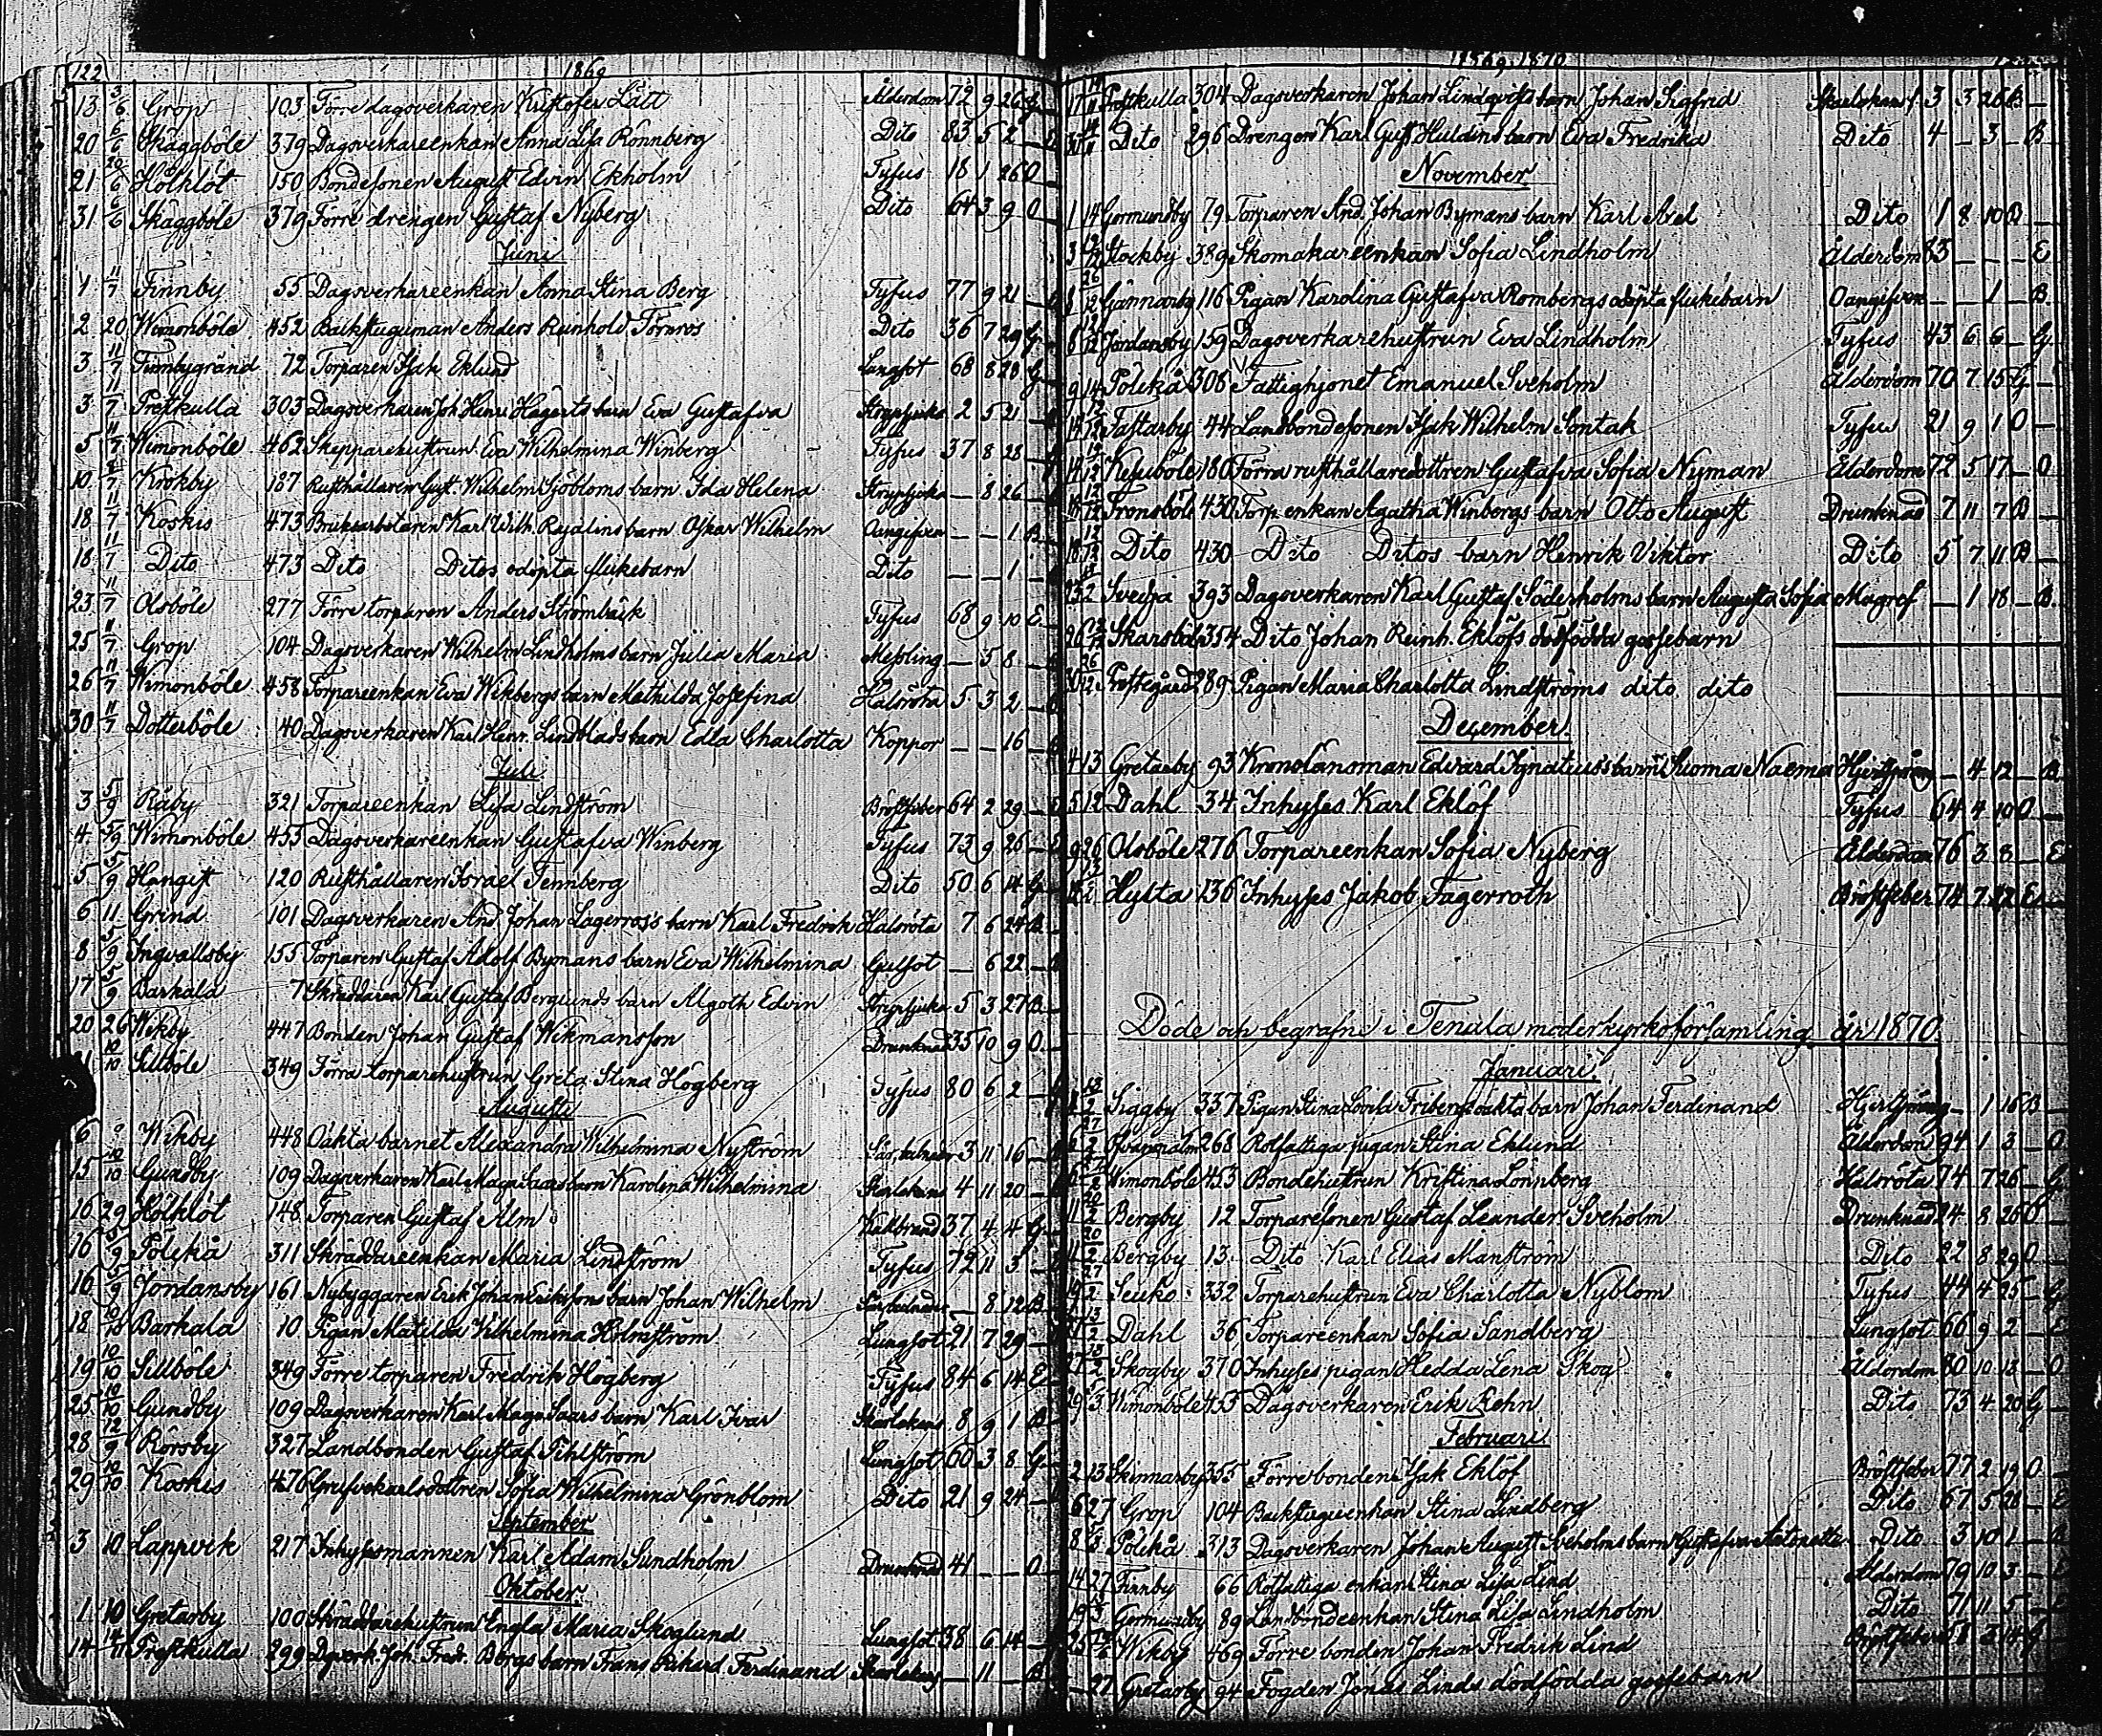 122 1869
13 3/6 Grop 103 Förre dagsverkaren Kristofer Lätt Ålderdom 72 9 26 G
20 6/6 Skäggböle 379 Dagsverkareenkan Anna Lisa Rönnberg Dito 83 5 2 _
21 20/6 Hölklöt 150 Bondesonen August Edvin Ekholm Tyfus 18 1 26 O
31 6/6 Skäggböle 379 Förre drengen Gustaf Nyberg Dito 64 3 9 O
Juni
1 11/7 Finnby 55 Dagsverkareenkan Anna Stina Berg Tyfus 77 9 21 _
2 20 Wimonböle 452 Backstuguman Anders Reinhold Törnros Dito 36 7 29 G
3 11/7 Finnbygränd 72 Torparen Isak Eklund Lungsot 68 8 28 G
3 11/7 Prestkulla 303 Dagsverkaren Joh. Henr. Hägerts barn Eva Gustafva Strypsjuka 2 5 21 _
5 11/7 Wimonböle 462 Skepparehustrun Eva Wilhelmina Winberg Tyfus 37 8 28 _
10 Krokby 187 Rusthållaren Gust. Wilhelm Sjöbloms barn Ida Helena Strypsjuka _ 8 26 _
18 11/7 Koskis 473 Bruksarbetaren Karl Wilh. Rejdlins barn Oskar Wilhelm Oangifven _ _ 1 B
18 11/7 Dito 473 Dito Ditos odöpta flickebarn Dito _ _ 1 _
23 11/7 Olsböle 277 Förre torparen Anders Strömbäck Tyfus 68 9 10 E
25 11/7 Grop 104 Dagsverkaren Wilhelm Lindholms barn Julia Maria Messling _ 5 8 _
26 11/7 Wimonböle 458 Torpareenkan Eva Wikbergs barn Mathilda Josefina Halsröta 5 3 2 _
30 11/7 Dotterböle 40 Dagsverkaren Karl Henr. Lindblads barn Edla Charlotta Koppor _ _ 16 _
Juli
3 5/9 Råby 321 Torpareenkan Lisa Lindström Bröstfeber 64 2 29 _
4 5/9 Wimonböle 455 Dagsverkareenkan Gustafva Winberg Tyfus 73 9 26 _
5 5/9 Hangist 120 Rusthållaren Israel Tennberg Dito 50 6 14 G
6 11 Grind 101 Dagsverkaren And. Johan Lagerros's barn Karl Fredrik Halsröta 7 6 24 B
8 5/9 Ingvallsby 155 Torparen Gustaf Adolf Bymans barn Eva Wilhelmina Gulsot _ 6 22 _
17 5/9 Barkala 7 Skräddaren Karl Gustaf Berglunds barn Algoth Edvin Strypsjuka 5 3 27 B
20 26 Wikby 447 Bonden Johan Gustaf Wikmansson Drunknad 35 10 9 O
10/10 Sillböle 349 Förra torparehustrun Greta Stina Högberg Tyfus 80 6 2 _
Augusti
6 Wikby 448 Oäkta barnet Alexandra Wilhelmina Nyström 3 11 16 _
15 10/10 Gundby 109 Dagsverkaren Karl Magn. Saars barn Karolina Wilhelmina Skarlakans 4 11 20 _
16 29 Hölklöt 148 Torparen Gustaf Alm Kallbrand 37 4 4 G
16 5/9 Påleka 311 Skräddareenkan Maria Lindström Tyfus 72 11 3 _
16 5/9 Jordansby 161 Nybyggaren Erik Johan Erikssons barn Johan Wilhelm _ 8 12 B
18 10/10 Barkala 10 Pigan Matilda Wilhelmina Holmström Lungsot 21 7 29 _
19 10/10 Sillböle 349 Förre torparen Fredrik Högberg Tyfus 84 6 14 E
25 10/10 Gundby 109 Dagsverkaren Karl Magn. Saars barn Karl Ivar Skarlakans 8 9 1 B
28 12/9 Rörsby 327 Landbonden Gustaf Pihlström Lungsot 60 3 8 G
29 10/10 Koskis 476 Grufvekarlsdottren Sofia Wilhelmina Grönblom Dito 21 9 24 _
September
3 10 Lappvik 217 Inhysesmannen Karl Adam Sundholm Drunknad 41 _ _ O
Oktober.
1 10 Gretarby 100 Skräddarehustrun Engla Maria Skoglund Lungsot 38 6 14 _
14 14/11 Prestkulla 299 Dgverk. Joh. Fredr. Bergs barn Frans Rikhard Ferdinand Skarlakans _ 11 _ B
1869, 1870
17 14/11 Prestkulla 304 Dagsverkaren Johan Lindqvists barn Johan Sigfrid Skarlakans f. 3 3 26 B _
Dito 296 Drengen Karl Gust. Huldins barn Eva Fredrika Dito 4 _ 3 _ B
November
1 14 Germundby 79 Torparen And. Johan Bymans barn Karl Axel Dito 1 8 10 B _
3 Stockby 389 Skomakareenkan Sofia Lindholm Ålderdom 83 _ _ _ E
Gännarby 116 Pigan Karolina Gustafva Rombergs odöpta flickebarn Oangifven _ _ 1 _ B
Jordansby 159 Dagsverkarehustrun Eva Lindholm Tyfus 43 6 6 _ G
9 14 Påleka 306 Fattighjonet Emanuel Sveholm Ålderdom 70 7 15 G
Fastarby 44 Landbondesonen Isak Wilhelm Sontak Tyfus 21 9 1 O _
14 Kejsböle 180 Förra rusthållaredottren Gustafva Sofia Nyman Ålderdom 72 5 17 _ O
18 12/12 Tronsböle 430 Torp. enkan Agatha Winbergs barn Otto August Drunknad 7 11 7 B _
18 12/12 Dito 430 Dito Ditos barn Henrik Viktor Dito 5 7 11 B _
Svedja 393 Dagsverkaren Karl Gustaf Söderholms barn Augusta Sofia Magref _ 1 18 _ B
26 354 Dito Johan Reinh. Eklöfs dödfödda gossebarn
30 26/12 Prostegård 289 Pigan Maria Charlotta Lindströms dito dito
December.
4 13 Gretarby 93 Kronolänsman Edvard Ignatius's barn Suoma Naema Hjertsprång _ 4 12 _ B
5 12 Dahl 34 Inhyses Karl Eklöf Tyfus 64 4 10 O _
9 26 Olsböle 276 Torpareenkan Sofia Nyberg Ålderdom 76 3 8 _ E
Hylta 136 Inhyses Jakob Fagerroth Bröstfeber 74 7 22 E
Döde och begrafne i Tenala moderkyrkoförsamling år 1870.
Januari.
Siggby 337 Pigan Stina Lovisa Fribergs oäkta barn Johan Ferdinand Hjertsprång _ 1 16 B _
268 Rotfattiga pigan Stina Eklund Ålderdom 94 1 3 _ O
Wimonböle 453 Bondehustrun Kristina Lönnberg Halsröta 74 7 26 _ G
11 20/2 Bergby 12 Torparesonen Gustaf Leander Sveholm Drunknad 24 8 26 O _
11 20/2 Bergby 13 Dito Karl Elias Manström Dito 22 8 29 O _
Seuko 332 Torparehustrun Eva Charlotta Nyblom Tyfus 44 4 25 _ G
13/2 Dahl 36 Torpareenkan Sofia Sandberg Lungsot 66 9 2 _ E
27 13/2 Skogby 370 Inhyses pigan Hedda Lena Skog Ålderdom 80 10 13 _ O
29 Wimonböle 455 Dagsverkaren Erik Rehn Dito 73 4 20 G _
Februari
2 13 Skinnarby 355 Förre bonden Isak Eklöf Bröstfeber 77 2 19 O _
6 27 Grop 104 Backstuguenkan Stina Lindberg Dito 67 5 28 _ E
8 Påleka 313 Dagsverkaren Johan August Sveholms barn Gustafva Antonette Dito 3 10 1 _ B
14 27 Finnby 66 Rotfattiga enkan Stina Lisa Lind Ålderdom 79 10 3 _ E
19 Germundby 89 Landbondeenkan Stina Lisa Lindholm Dito 71 11 5 _
25 Wikby 469 Förre bonden Johan Fredrik Lind Bröstfeber 58 3 14 G
_ 27 Gretarby 94 Fogden Jonas Linds dödfödda gossebarn